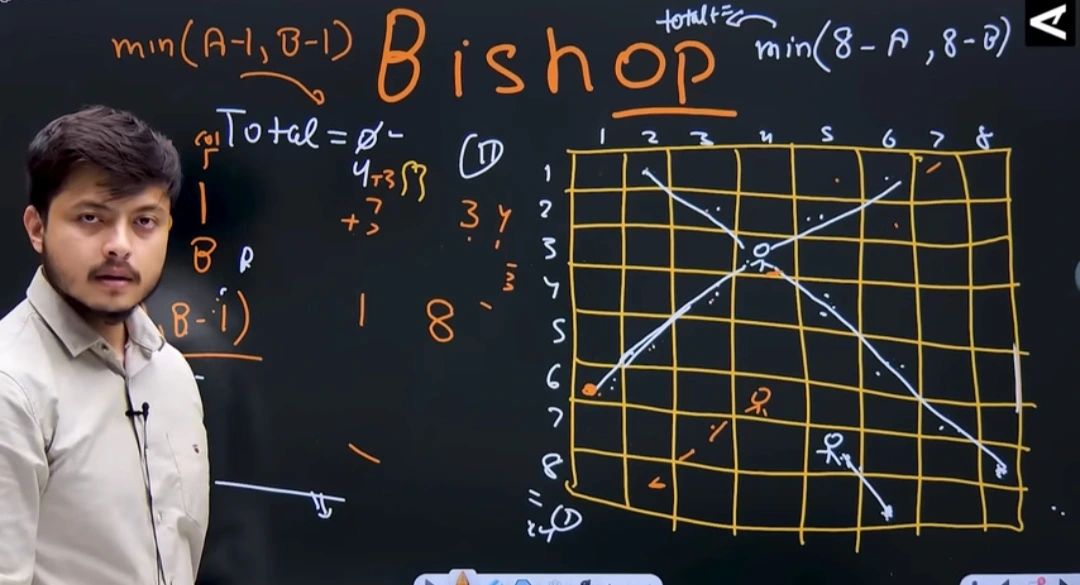 total+=
min(A-1, B-1) Bishop min(8-A, 8-B)
Total = 0
4+3
3 4
3
B
, B-1)
1 8
1 2 3 4 5 6 7 8
1
2
3
4
5
6
7
8